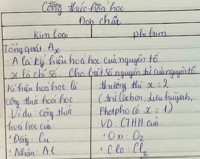 Công thức hóa học
Đơn chất
Kim loại
phi kim
Tổng quát Ax
A là ký hiệu hoá học của nguyên tố
x là chỉ số. Cho biết số nguyên tử của nguyên tố
Kí hiệu hoá học là
công thức hoá học
Ví dụ công thức
hoá học của
+ Đồng: Cu
+ Nhôm: Al
thường thì x = 2
(trừ Cacbon, Lưu huỳnh,
Photpho có x = 1)
VD. CTHH của
+ Oxi: O2
+ Clo: Cl2